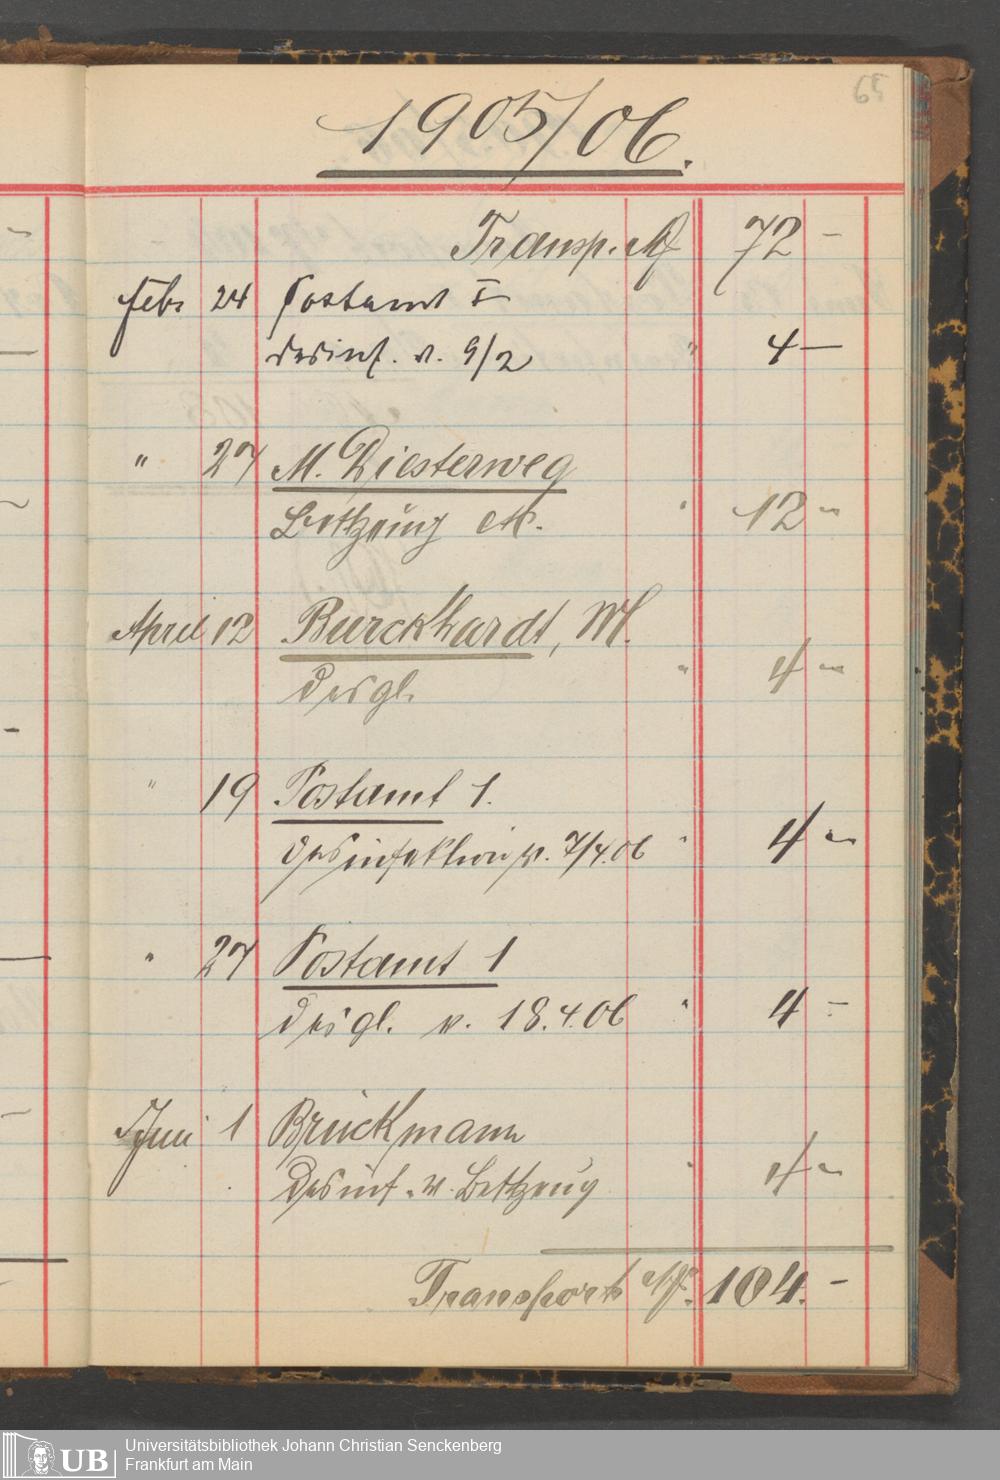 65
1905/06.
Transp. M 72 –
Febr 24 Postamt I
desinf. v. 9/2 " 4 –
" 27 M. Diesterweg
Bettzeug etc. " 12 –
April 12 Burckhardt, W.
desgl. " 4 –
" 19 Postamt 1.
Desinfektion v. 7/4.06 " 4 –
" 27 Postamt 1
desgl. v. 18.4.06 " 4 –
Juni 1 Brückmann
Desinf. v. Bettzeug " 4 –
Transport M. 104. –
UB
Universitätsbibliothek Johann Christian Senckenberg
Frankfurt am Main